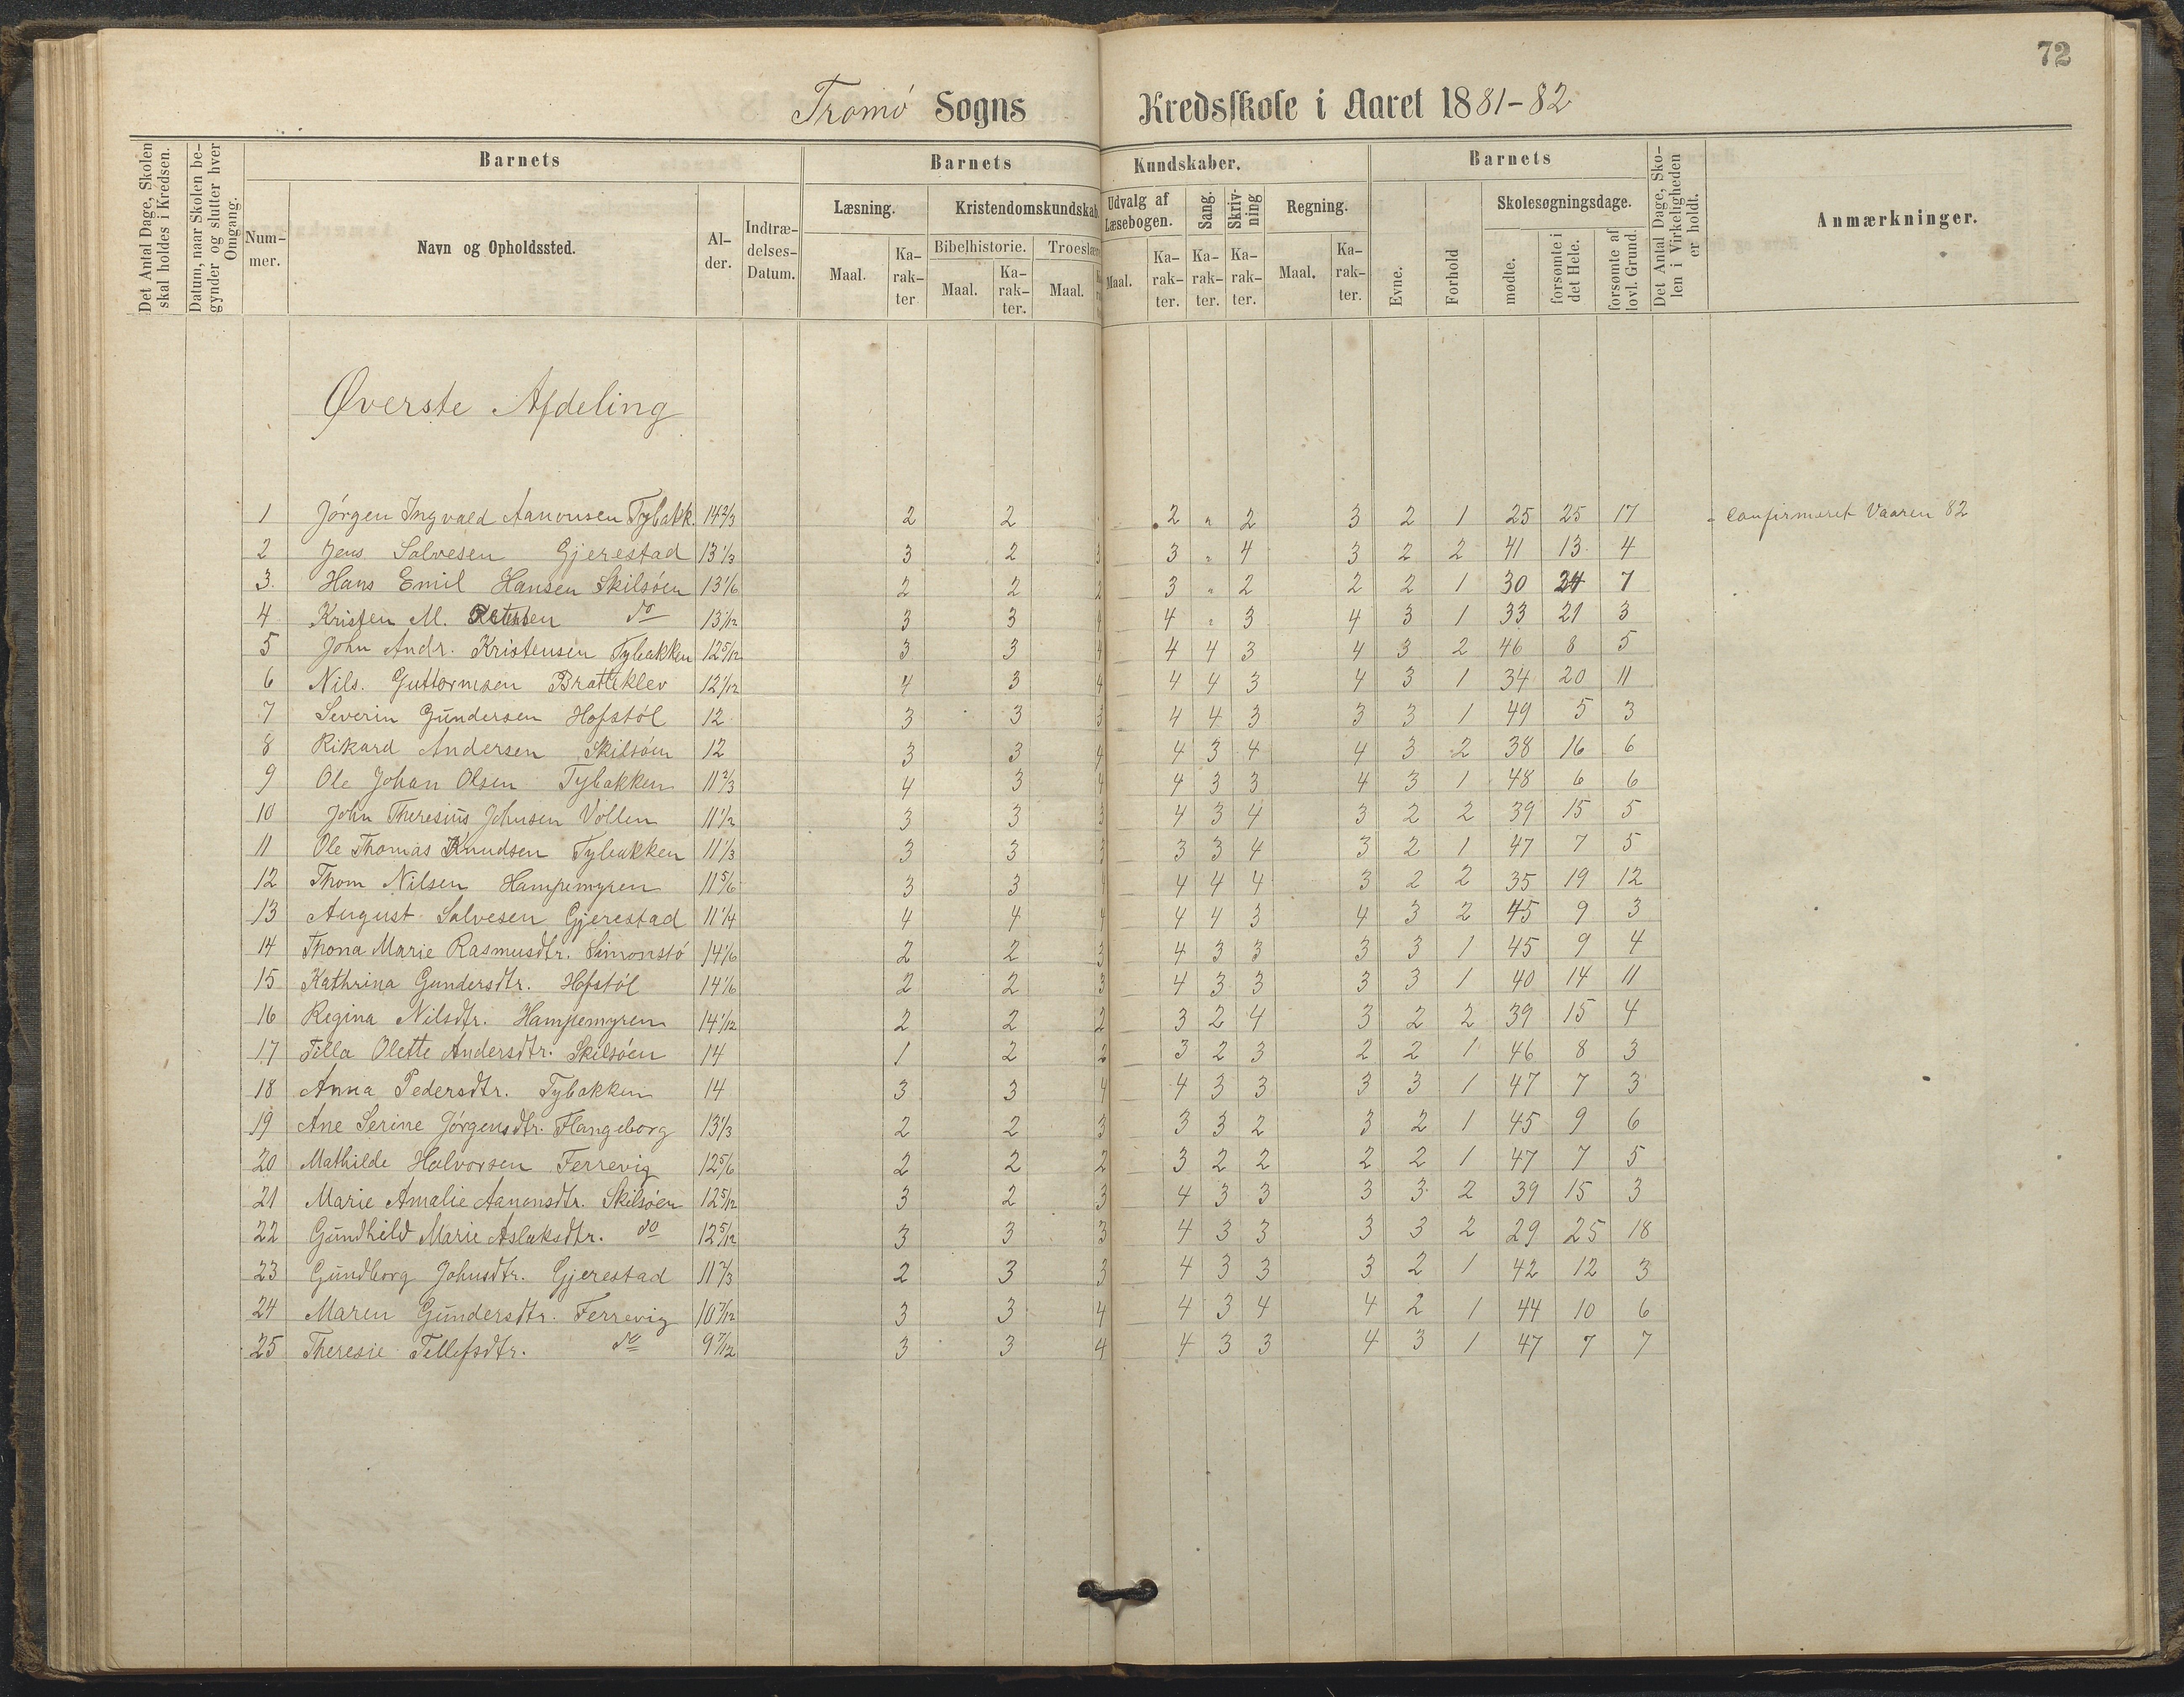 72
Tromø Sogns Kredsskole i Aaret 1881-82
Det Antal Dage, Skolen skal holdes i Kredsen.
Datum, naar Skolen begynder og slutter hver Omgang.
Barnets
Nummer.
Navn og Opholdssted.
Alder.
Indtrædelses-Datum.
Barnets Kundskaber.
Læsning.
Maal. Karakter
Kristendomskundskab
Bibelhistorie.
Maal. Karakter.
Troeslæ
Maal.
Udvalg af Læsebogen.
Maal. Karakter.
Sang.
Karakter.
Skrivning
Karakter.
Regning.
Maal. Karakter.
Barnets
Evne.
Forhold
Skolesøgningsdage.
mødte.
forsømte i det Hele.
forsømte af lovl. Grund.
Det Antal Dage, Skolen i Virkeligheden er holdt.
Anmærkninger.
Øverste Afdeling
1 Jørgen Ingvald Aanonsen Tybakk. 14 2/3 2 2 2 " 2 3 2 1 25 25 17 Confirmeret Vaaren 82
2 Jens Salvesen Gjerestad 13 1/3 3 2 3 3 " 4 3 2 2 41 13 4
3. Hans Emil Hansen Skilsøen 13 1/6 2 2 2 3 " 2 2 2 1 30 24 7
4 Kristen M. do 13 1/12 3 3 4 4 " 3 4 3 1 33 21 3
5 John Andr. Kristensen Tybakken 12 5/12 3 3 4 4 4 3 4 3 2 46 8 5
6 Nils. Guttormsen Bratteklev 12 1/12 4 3 4 4 4 3 4 3 1 34 20 11
7 Severin Gundersen Hofstøl 12 3 3 3 4 4 3 3 3 1 49 5 3
8 Rikard Andersen Skilsøen 12 3 3 4 4 3 4 4 3 2 38 16 6
9 Ole Johan Olsen Tybakken 11 2/3 4 3 4 4 3 3 4 3 1 48 6 6
10 John Theresius Johnsen Vollen 11 1/2 3 3 3 4 3 4 3 2 2 39 15 5
11 Ole Thomas Knudsen Tybakken 11 1/3 3 3 3 3 3 4 3 2 1 47 7 5
12 Thom Nilsen Hampemyren 11 5/6 3 3 4 4 4 4 3 2 2 35 19 12
13 August Salvesen Gjerestad 11 1/4 4 4 4 4 4 3 4 3 2 45 9 3
14 Thona Marie Rasmusdtr. Simonstø 14 1/6 2 2 3 4 3 3 3 3 1 45 9 4
15 Kathrina Gundersdtr. Hofstøl 14 1/6 2 2 3 4 3 3 3 3 1 40 14 11
16 Regina Nilsdtr. Hampemyren 14 1/12 2 2 2 3 2 4 3 2 2 39 15 4
17 Tilla Olette Andersdtr. Skilsøen 14 1 2 2 3 2 3 2 2 1 46 8 3
18 Anna Pedersdtr. Tybakken 14 3 3 4 4 3 3 3 3 1 47 7 3
19 Ane Serine Jørgensdtr. Flangeborg 13 1/3 2 2 3 3 3 2 3 2 1 45 9 6
20 Mathilde Halvorsen Ferrevig 12 5/6 2 2 2 3 2 2 2 2 1 47 7 5
21 Marie Amalie Aanonsdtr. Skilsøen 12 5/12 3 2 3 4 3 3 3 3 2 39 15 3
22 Gundhild Marie Aslaksdtr. do 12 5/12 3 3 3 4 3 3 3 3 2 29 25 18
23 Gundborg Johnsdtr. Gjerestad 11 2/3 2 3 3 4 3 3 3 2 1 42 12 3
24 Maren Gundersdtr. Ferrevig 10 7/12 3 3 4 4 3 4 4 2 1 44 10 6
25 Theresie Tellefsdtr. do 9 7/12 3 3 4 4 3 3 4 3 1 47 7 7